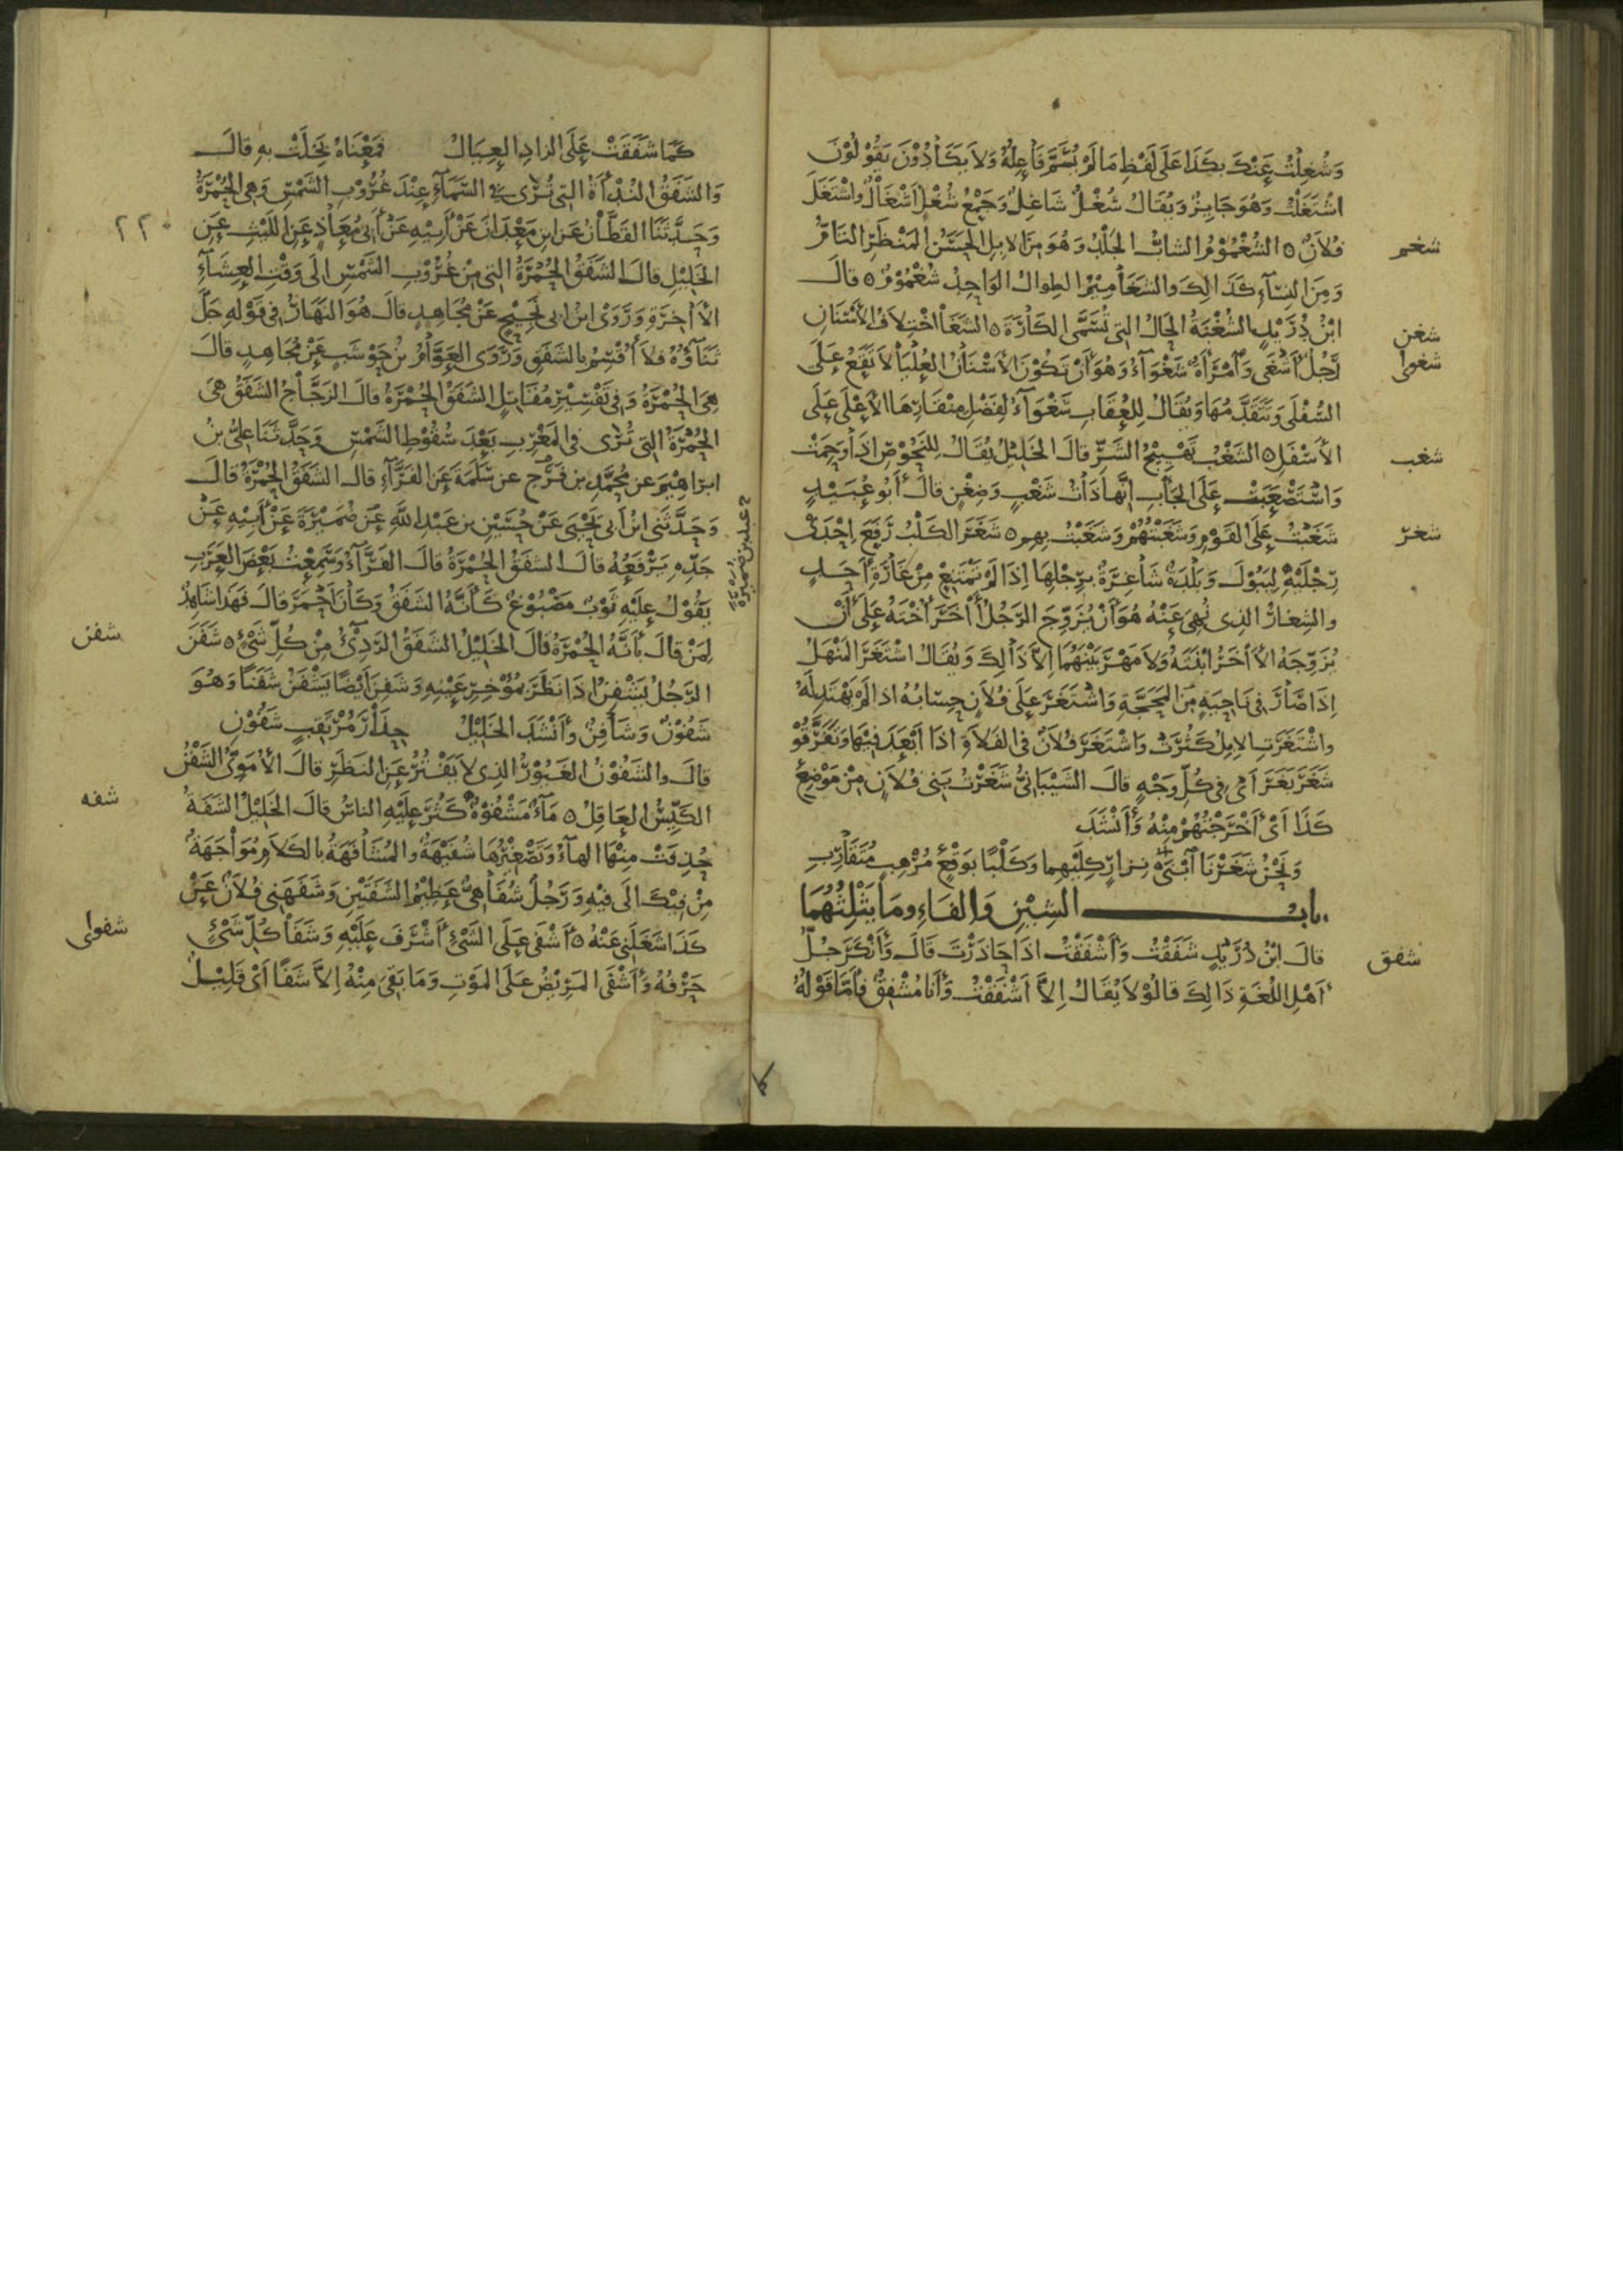 وَشُغِلْتُ عَنْكَ بِكَذَا عَلَى لَفْظِ مَا لَمْ يُسَمَّ فَاعِلُهُ وَلَا يَكَادُوْنَ يَقُوْلُوْنَ
اشْتَغَلْتُ وَهُوَ جَايِزٌ وَيُقَالُ شُغْلٌ شَاغِلٌ وَجَمْعُ شُغْلٍ اَشْغَالٌ وَاشْتَغَلَ
شغم
فُلَانٌ ه الشُغْمُوْمُ الشابُّ الجَلْدُ وَهُوَ مِنَ الابِلِ الحَسَنُ المَنْظَرِ التَامُّ
وَمِنَ النِسَآءِ كَذَالِكَ والشَغَامِيْمُ الطِوَالُ الوَاحِدُ شُغْمُوْمٌ ه قالَ
شغن
ابْنُ دُرَيْدٍ الشُغْنَةُ الحَالُ التِى تُسَمَّى الكَارَةَ ه الشَغَا اخْتِلَافُ الأَسْنَانِ
شغوا
رَجُلٌ أَشْغَى وَٱمْرَأَةٌ شَغْوَآءُ وَهُوَ أَنْ تَكُوْنَ الأَسْنَانُ العُلْيَا لَا تَقَعُ عَلَى
السُفْلَى وَتَتَقَدَّمُهَا وَيُقَالُ لِلعُقَابِ شَغْوَآءُ لِفَضْلِ مِنْقَارِهَا الأَعْلَى عَلَى
شغب
الأَسْفَلِ ه الشَغْبُ تَهْيِيْجُ الشَرِّ قالَ الخَلِيْلُ يُقَالُ لِلنَحُوْصِ اذَا وَحِمَتْ
وَاسْتَصْعَبَتْ عَلَى الجَأْبِ اِنَّهَا ذَاتُ شَغْبٍ وَضِغْنٍ قالَ أَبُو عُبَيْدٍ
شغر
شَغَبْتُ عَلَى القَوْمِ وَشَغَبْتُهُمْ وَشَغَبْتُ بِهِم ه شَغَرَ الكَلْبُ رَفَعَ اِحْدَى
رِجْلَيْهِ لِيَبُوْلَ وَبَلْدَةٌ شَاغِرَةٌ بِرِجْلِهَا اِذَا لَمْ تَمْتَنِعْ مِنْ غَارَةِ أَحَدٍ
والشِغَارُ الذِى نُهِىَ عَنْهُ هُوَ أَنْ يُزَوِّجَ الرَجُلُ أَخَرَ أُخْتَهُ عَلَى أَنْ
يُزَوِّجَهُ الأَخَرُ ابْنَتَهُ وَلَا مَهْرَ بَيْنَهُمَا اِلَّا ذَالِكَ وَيُقَالُ اشْتَغَرَ المَنْهَلُ
اِذَا صَارَ فِى نَاحِيَةٍ مِنَ المَحَجَّةِ وَاشْتَغَرَ عَلَى فُلَانٍ حِسَابُهُ اذا لَمْ يَهْتَدِ لَهُ
واشْتَغَرَتِ الابِلُ كَثُرَتْ وَاشْتَغَرَ فُلَانٌ فى الفَلَاةِ اذَا أَبْعَدَ فِيْهَا وَتَفَرَّقُوْ
شَغَرَ بَغَرَ اَىْ فِى كُلِّ وَجْهٍ قالَ الشَيْبَانِىُّ شَغَرْتُ بَنِى فُلَانٍ مِنْ مَوْضِعِ
كَذَا اَىْ أَخْرَجْتُهُمْ مِنْهُ وَأَنْشَدَ
وَنَحْنُ شَغَرْنَا ٱبْنَىْ نِزَارٍ كِلَيْهِمَا وَكَلْبًا بِوَقْعٍ مُرْهِبٍ مُتَقَارِبِ
بابُ الشِيْنِ وَالفَاءِ ومَا يَثْلِثُهُمَا
شفق
قالَ ابْنُ دُرَيْدٍ شَفَقْتُ وَأَشْفَقْتُ اذَا حَاذَرْتَ قَالَ وَأَنْكَرَ جُلُّ
أَهْلِ اللُغَةِ ذَالِكَ قالُوْ لَا يُقَالُ اِلَّا اَشْفَقْتُ وَأَنَا مُشْفِقٌ فَأَمَّا قَوْلُهُ
كَمَا شَفَقَتْ عَلَى الزادِ العِيَالُ فَمَعْنَاهُ بَخِلَتْ بِهِ قالَ
وَالشَفَقُ النُدْأَةُ التِى تُرَى فِى السَمَآءِ عِنْدَ غُرُوْبِ الشَمْسِ وَهِىَ الحُمْرَةُ
٢٢
وَحَدَّثَنَا القَطَّانُ عَنِ ابنِ مَعْدَانَ عَنْ أَبِيْهِ عَنْ أَبِى مُعَاذٍ عَنِ اللَيْثِ عَنِ
الخَلِيْلِ قالَ الشَفَقُ الحُمْرَةُ التِى مِنْ غُرُوْبِ الشَمْسِ الَى وَقْتِ العِشَآءِ
الأَخِرَةِ وَرَوَى ابنُ ابى نَجِيْحٍ عَنْ مُجَاهِدٍ قالَ هُوَ النَهَارُ فِى قَوْلِهِ جَلَّ
ثَنَآؤُهُ فلا أُقْسِمُ بالشَفَقِ وَرَوَى العَوَّامُ بْنُ حَوْشَبٍ عَنْ مُجَاهِدٍ قالَ
هِىَ الحُمْرَةُ وَفِى تَفْسِيْرِ مُقَاتِلٍ الشَفَقُ الحُمْرَةُ قالَ الزَجَّاجُ الشَفَقُ هِىَ
الحُمْرَةُ التِى تُرَى فى المَغْرِبِ بَعْدَ سُقُوْطِ الشَمْسِ وَحَدَّثَنَا علىُّ بنُ
ابراهِيْمَ عن مُحَمَّدِ بنِ فَرَجٍ عن سَلَمَةَ عَنِ الفَرَّآءِ قالَ الشَفَقُ الحُمْرَةُ قالَ
وَحَدَّثَنِى ابنُ أَبِى يَحْيَى عَنْ حُسَيْنِ بنِ عَبْدِ اللَّهِ عَنْ ضُمَيْرَةَ عَنْ أَبِيْهِ عَنْ
جَدِّهِ يَرْفَعُهُ قالَ الشَفَقُ الحُمْرَةُ قالَ الفَرَّآءُ وَسَمِعْتُ بَعْضَ العَرَبِ
يَقُوْلُ عَلَيْهِ ثَوْبٌ مَصْبُوْغٌ كَأَنَّهُ الشَفَقُ وَكَانَ أَحْمَرَ قالَ فَهَذَا شَاهِدٌ
شفن
لِمَنْ قالَ بأَنَّهُ الحُمْرَةُ قالَ الخَلِيْلُ الشَفَقُ الرَدِىْءُ مِنْ كُلِّ شَىْءٍ ه شَفَنَ
الرَجُلُ يَشْفِنُ اذَا نَظَرَ بِمُؤْخِرِ عَيْنِهِ وَشَفِنَ أَيْضًا يَشْفَنُ شَفَنًا وَهُوَ
شَفُوْنٌ وَشَافِنٌ وَأَنْشَدَ الخَلِيْلُ حِذَارَ مُرْتَقِبٍ شَفُوْنِ
قالَ والشَفُوْنُ الغَيُوْرُ الذِى لا يَفْتُرُ عَنِ النَظَرِ قالَ الأُمَوِىُّ الشَفْنُ
شفه
الكَيِّسُ العَاقِلُ ه مَآءٌ مَشْفُوْهٌ كَثُرَ عَلَيْهِ الناسُ قالَ الخَلِيْلُ الشَفَةُ
حُذِفَتْ مِنْهَا الهآءُ وَتَصْغِيْرُهَا شُفَيْهَةٌ والمُشَافَهَةُ بالكَلَامِ مُوَاجَهَةٌ
مِنْ فِيْكَ الَى فِيْهِ وَرَجُلٌ شُفَاهِىٌّ عَظِيْمُ الشَفَتَيْنِ وَشَفَهَنِى فُلَانٌ عَنْ
شفوا
كَذَا شَغَلَنِى عَنْهُ ه أَشْفَى عَلَى الشَىْءِ أَشْرَفَ عَلَيْهِ وَشَفَا كُلِّ شَىْءٍ
حَرْفُهُ وَأَشْفَى المَرِيْضُ عَلَى المَوْتِ وَمَا بَقِىَ مِنْهُ اِلَّا شَفًا اَىْ قَلِيْلٌ